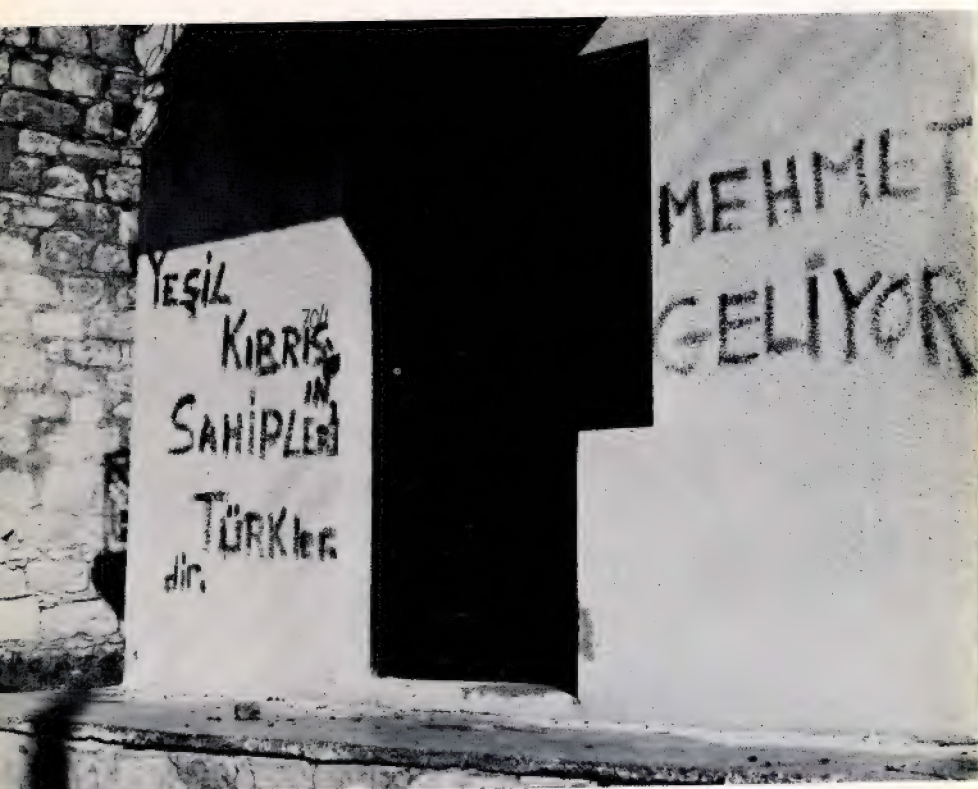 YEŞİL
704
KIBRIS,
İN
SAHİPLERİ
TÜRKler.
dir.
MEHMET
GELİYOR